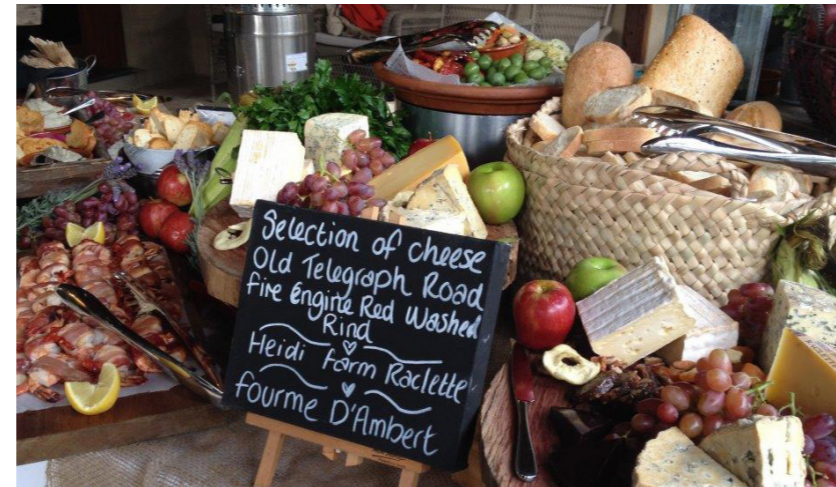 Selection of cheese
Old Telegraph Road
fire Engine Red Washed
Rind
Heidi farm Raclette
fourme D'Ambert